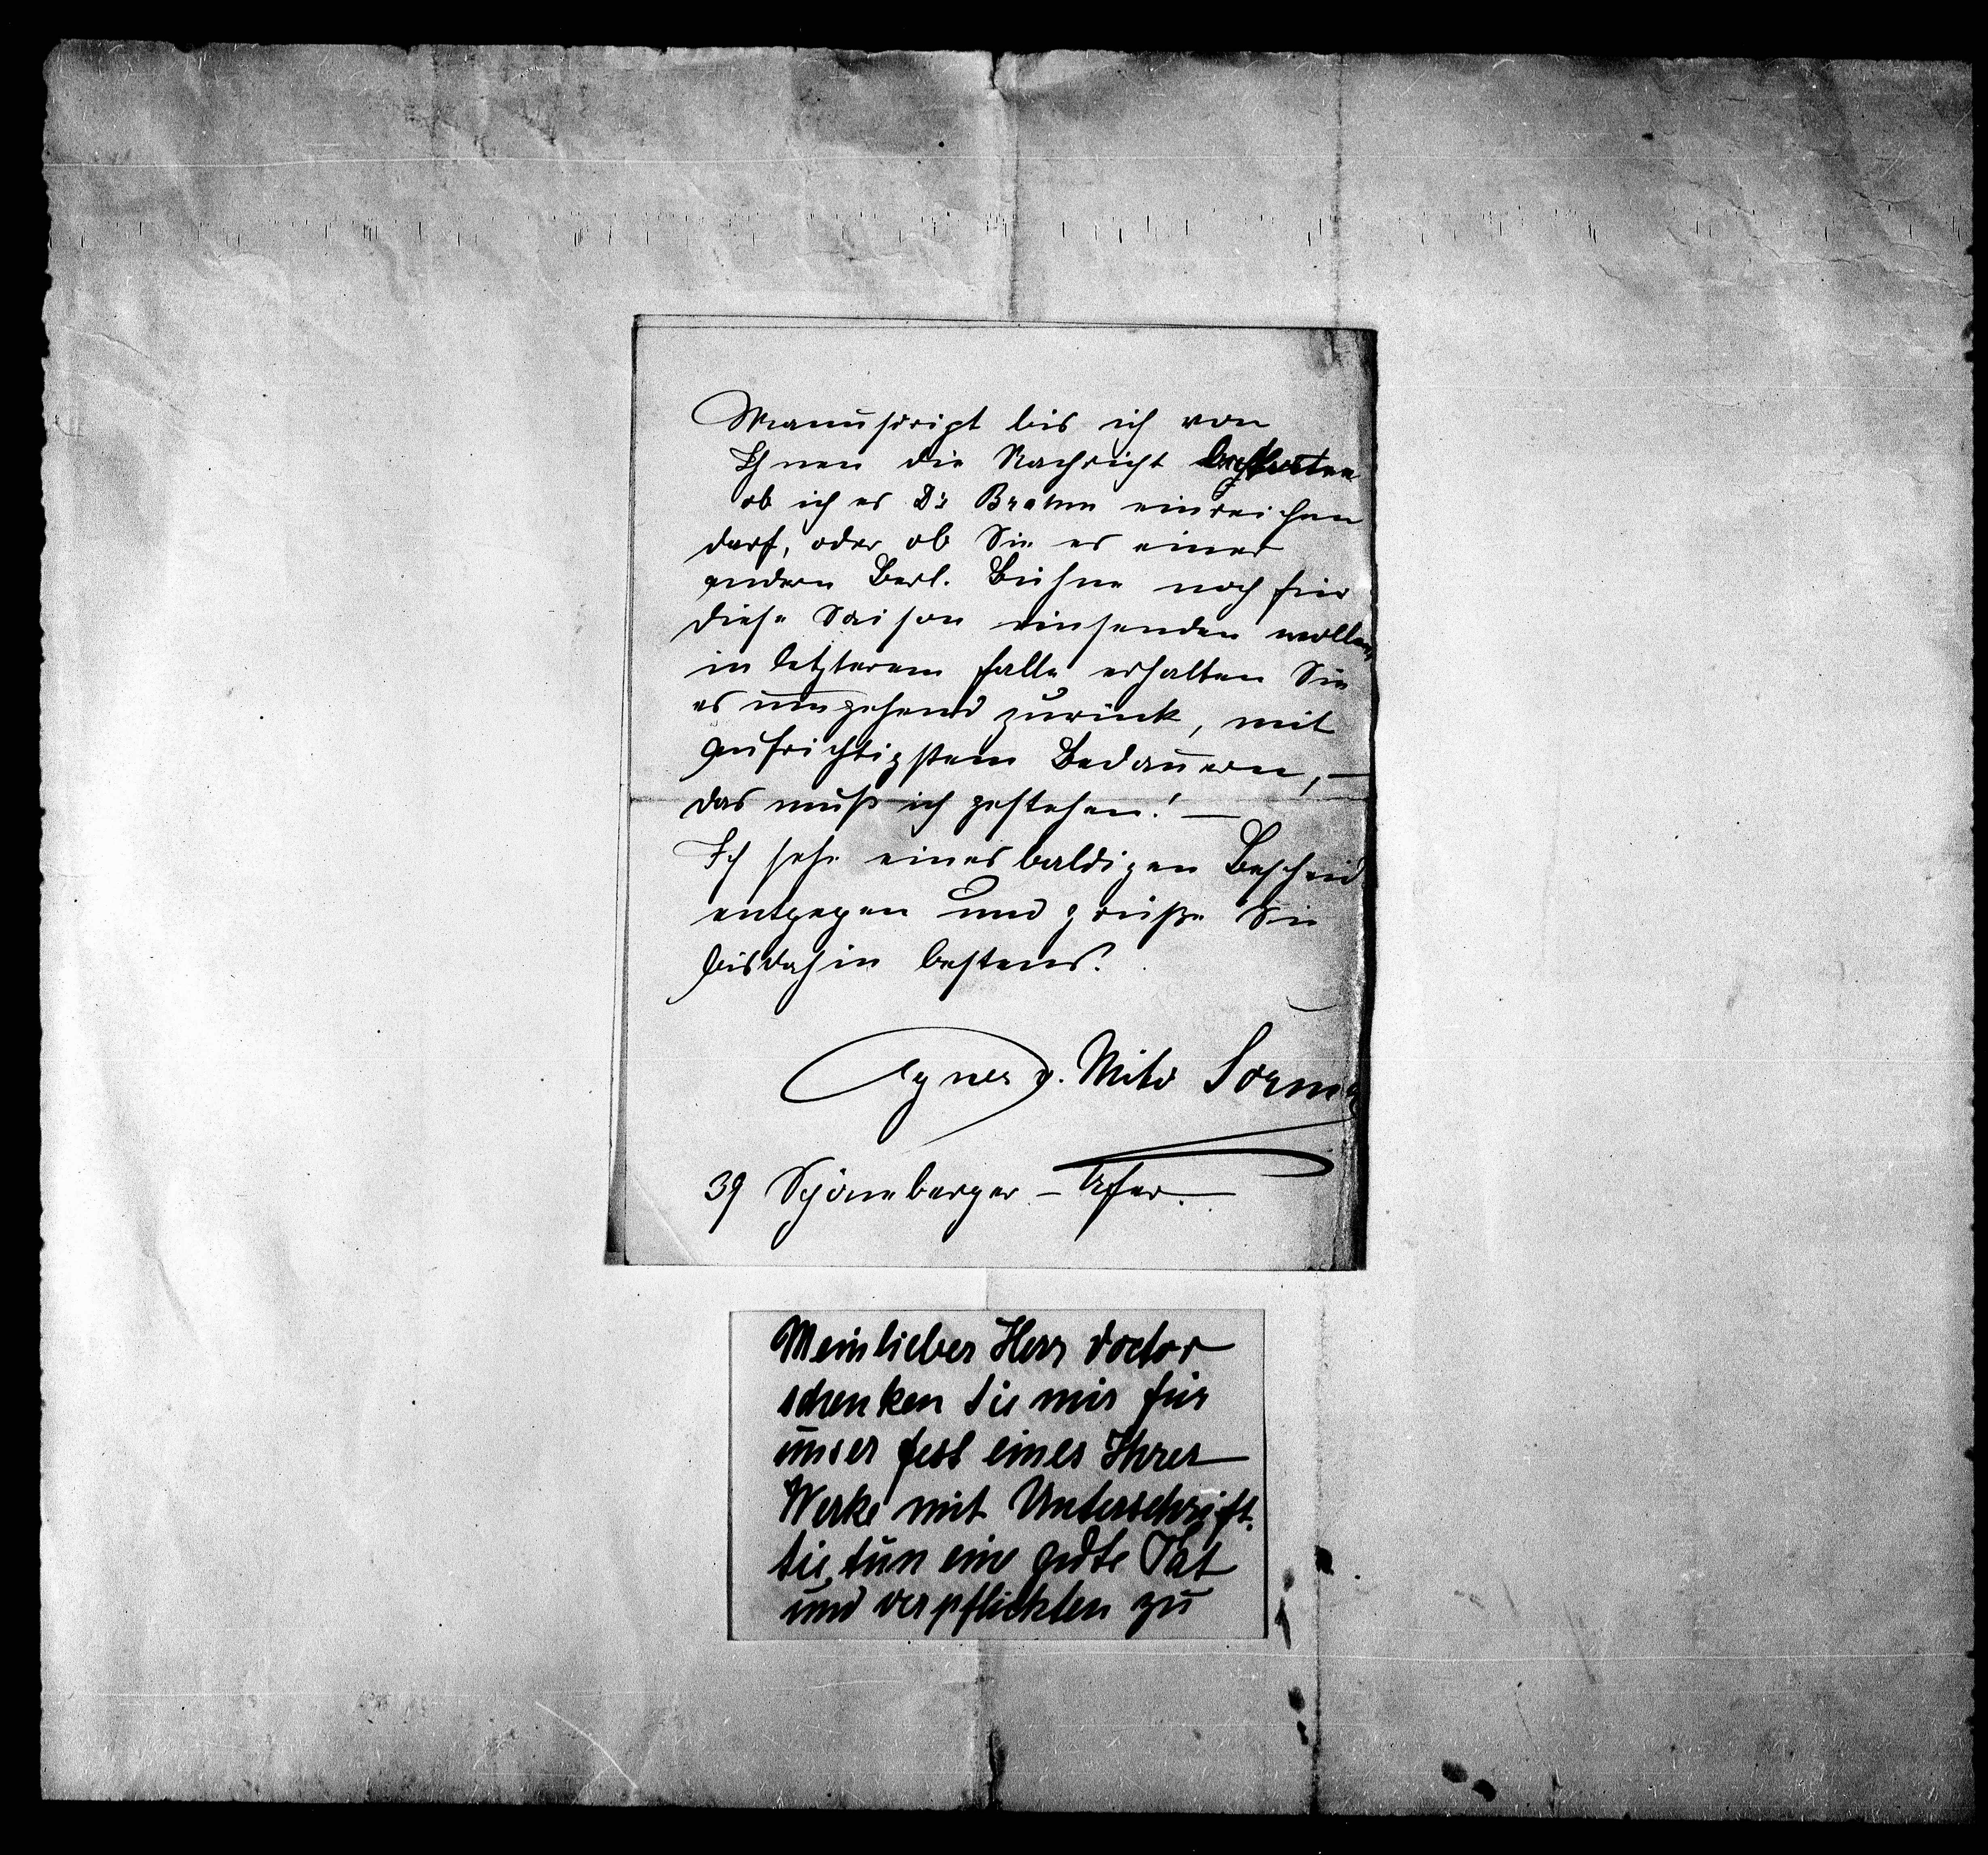 Manuscript bis ich von
Ihnen die Nachricht
ob ich es Dr Brahm einreichen
darf, oder ob Sie es einer
andern Berl. Bühne noch für
diese Saison einsenden wollen,
in letzterem Falle erhalten Sie
es umgehend zurück, mit
aufrichtigstem Bedauern, —
das muß ich gestehen! —
Ich sehe eines baldigen Bescheid
entgegen und grüße Sie
bisdahin bestens.
Agnes v. Mito Sorma
39 Schöneberger – Ufer.
Mein lieber Herr Doctor
schenken Sie mir für
unser Fest eines Ihrer
Werke mit Unterschrift.
Sie tun eine gute Tat
und verpflichten zu